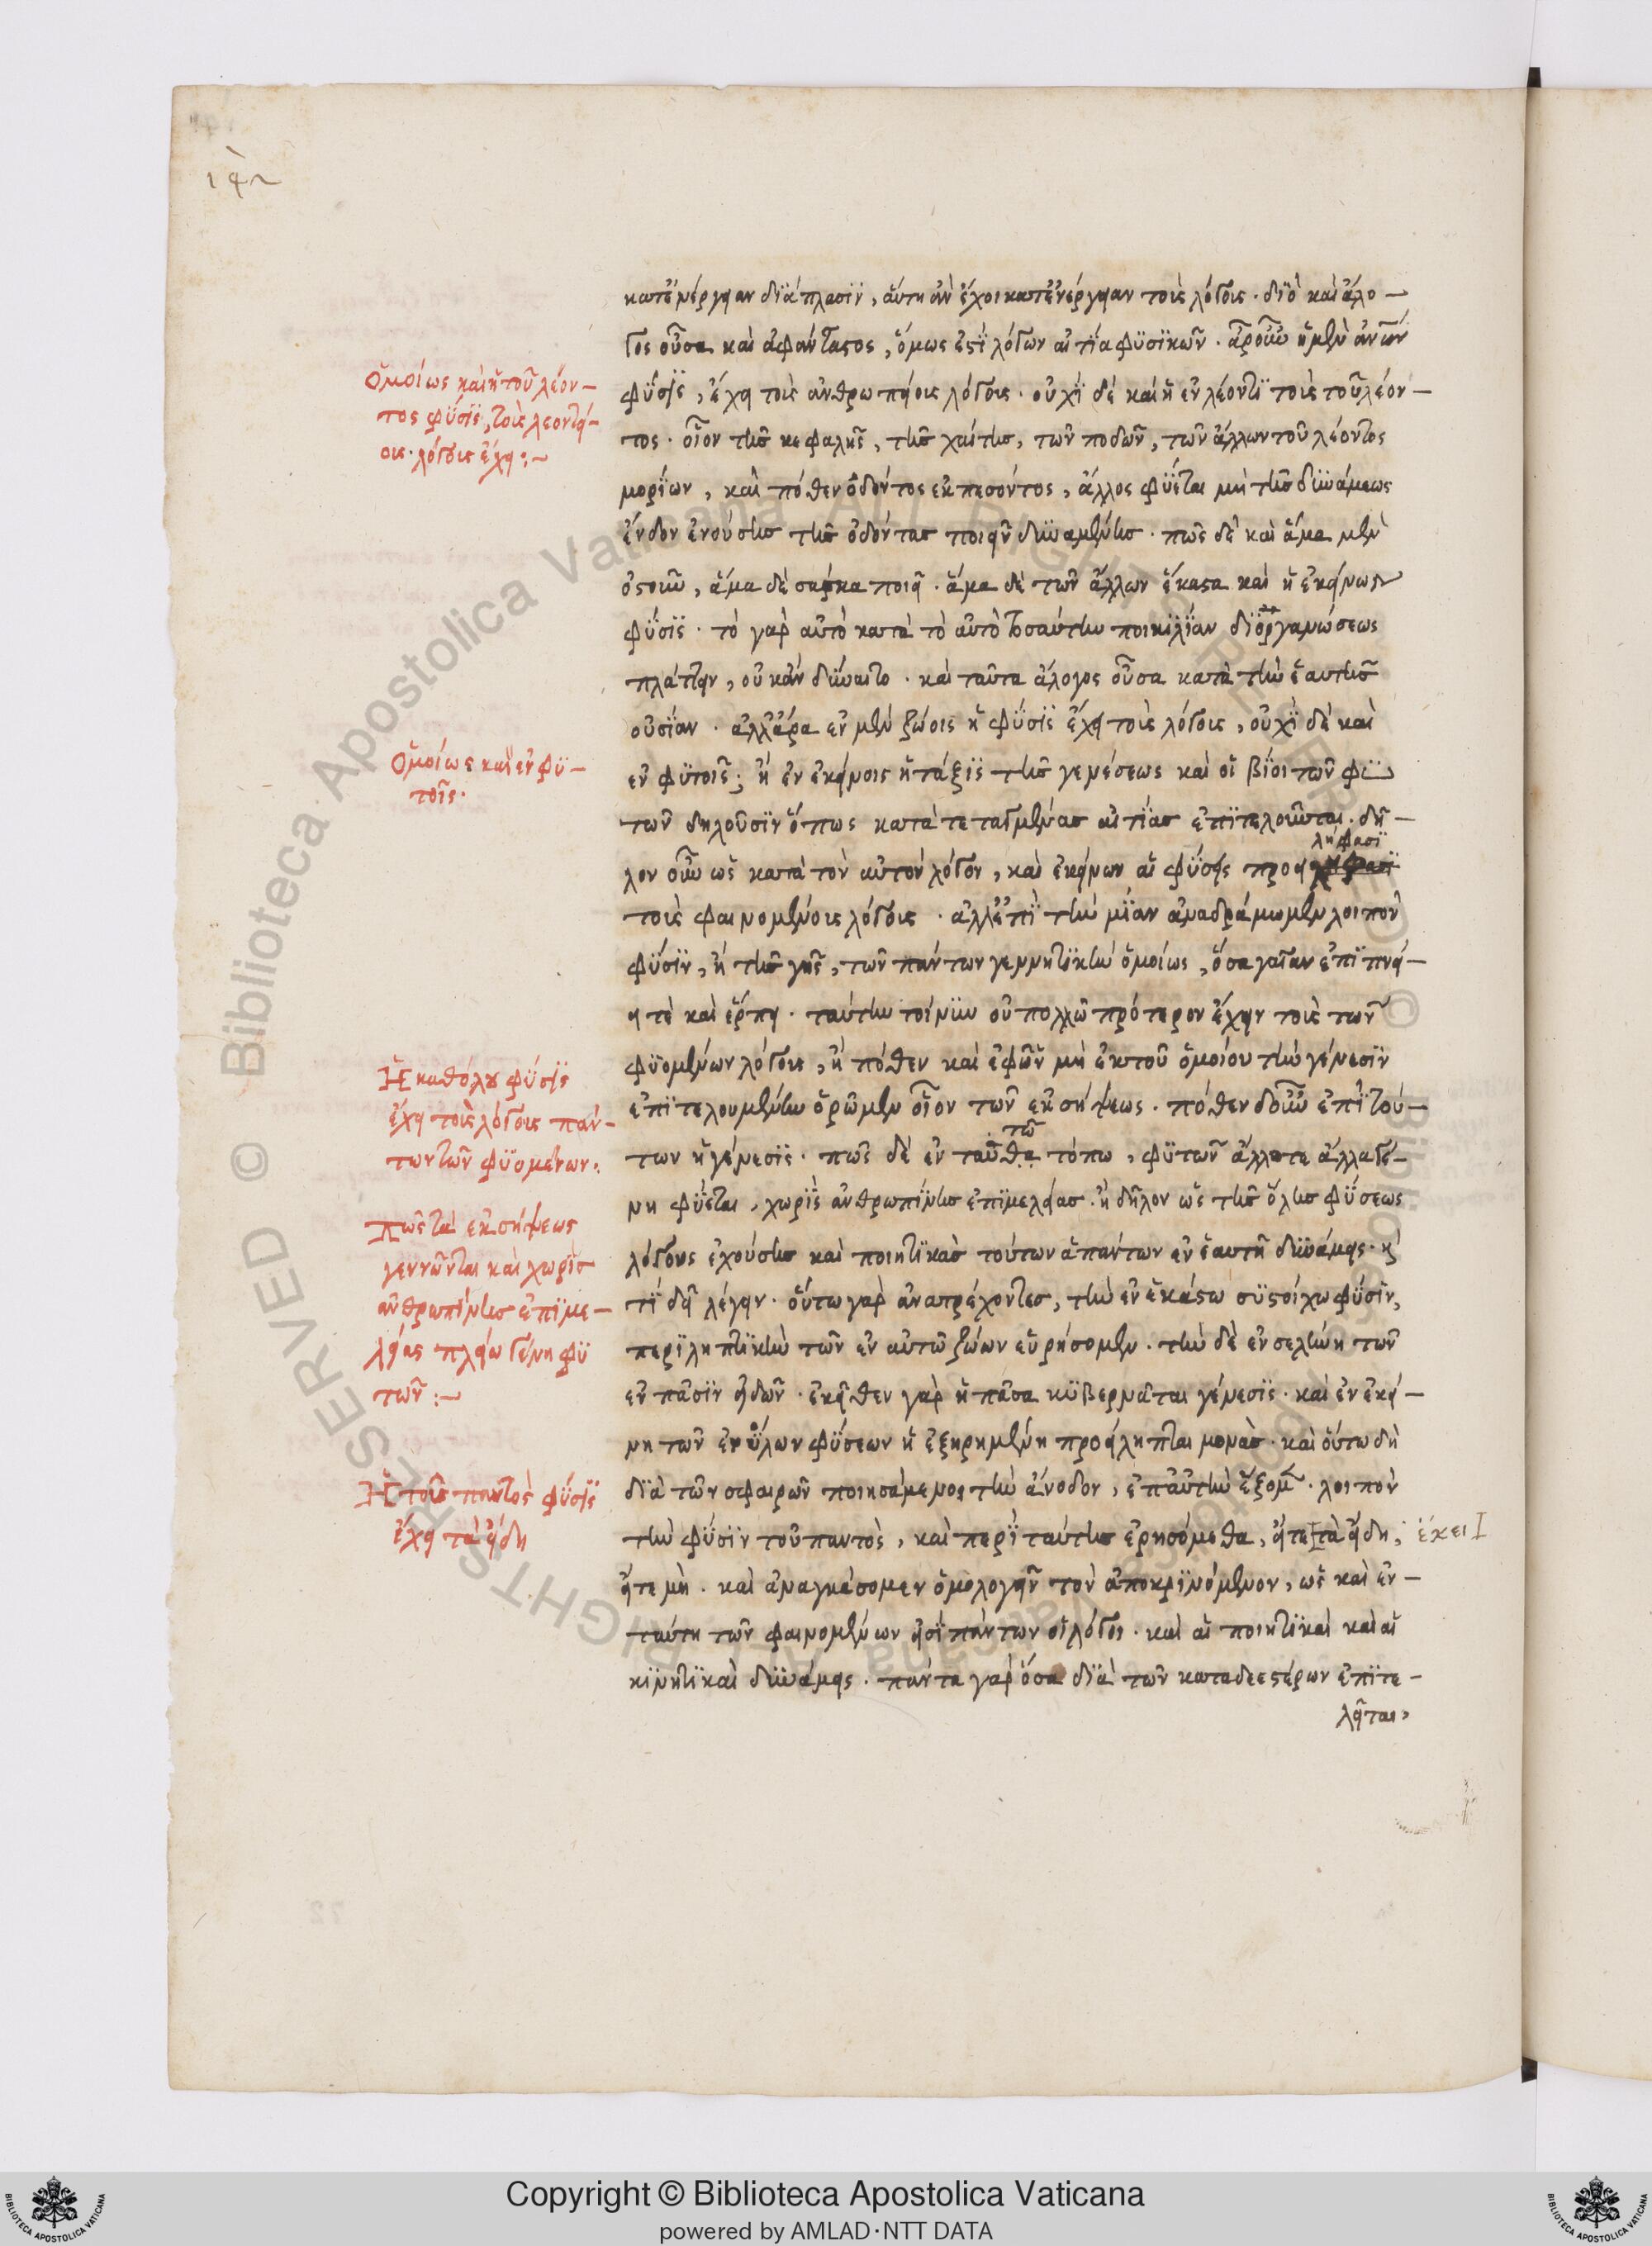 142
κατ' ἐνέργειαν διάπλασιν, αὕτη ἂν ἔχοι κατ' ἐνέργειαν τοὺς λόγους. διὸ καὶ ἄλο-
γος οὖσα καὶ ἀφάνταστος, ὅμως ἐστὶ λόγων αἰτία φυσικῶν. ἆρ' οὖν ἡ μὲν ἀνων
φύσις, ἔχει τοὺς ἀνθρωπείους λόγους. οὐχὶ δὲ καὶ ἡ ἐν λέοντι τοὺς τοῦ λέον-
τος. οἷον τῆς κεφαλῆς, τῆς χαίτης, τῶν ποδῶν, τῶν ἄλλων τοῦ λέοντος
μορίων, καὶ πόθεν ὀδόντος ἐκπεσόντος, ἄλλος φύεται μὴ τῆς δυνάμεως
ἔνδον ἐνούσης τῆς ὀδόντας ποιεῖν δυναμένης. πῶς δὲ καὶ ἅμα μὲν
ὀστοῦν, ἅμα δὲ σάρκα ποιεῖ. ἅμα δὲ τῶν ἄλλων ἕκαστα καὶ ἡ ἐκείνων
φύσις. τὸ γὰρ αὐτὸ κατὰ τὸ αὐτὸ τοσαύτην ποικιλίαν διοργανώσεως
πλάττειν, οὐκ ἂν δύναιτο. καὶ ταῦτα ἄλογος οὖσα κατὰ τὴν ἑαυτῆς
οὐσίαν. ἀλλ' ἆρα ἐν μὲν ζώοις ἡ φύσις ἔχει τοὺς λόγους, οὐχὶ δὲ καὶ
ἐν φυτοῖς; ἢ ἐν ἐκείνοις ἡ τάξις τῆς γενέσεως καὶ οἱ βίοι τῶν φυ
τῶν δηλοῦσιν ὅπως κατὰ τεταγμένας αἰτίας ἐπιτελοῦνται. δῆ-
λον οὖν ὡς κατὰ τὸν αὐτὸν λόγον, καὶ ἐκείνων αἱ φύσεις προει λήφασι
τοὺς φαινομένους λόγους. ἀλλ' ἐπὶ τὴν μίαν ἀναδράμωμεν λοιπὸν
φύσιν, ἢ τῆς γῆς, τῶν πάντων γεννητικὴν ὁμοίως, ὅσα γαῖαν ἐπιπνεί-
ει τὲ καὶ ἕρπει. ταύτην τοίνυν οὐ πολλῶ πρότερον ἔχειν τοὺς τῶν
φυομένων λόγους, ἢ πόθεν καὶ ἐφ' ὧν μὴ ἐκ τοῦ ὁμοίου τὴν γένεσιν
ἐπιτελουμένην ὁρῶμεν οἷον τῶν ἐκ σήψεως. πόθεν δ' οὖν ἐπὶ τού-
των ἡ γένεσις. πῶς δὲ ἐν ταὐτῶ τόπω, φυτῶν ἄλλοτε ἄλλα γέ-
νη φύεται, χωρὶς ἀνθρωπίνης ἐπιμελείας. ἢ δῆλον ὡς τῆς ὅλης φύσεως
λόγους ἐχούσης καὶ ποιητικὰς τούτων ἁπάντων ἐν ἑαυτῆ δυνάμεις. κ
τί δεῖ λέγειν. οὕτω γὰρ ἀνατρέχοντες, τὴν ἐν ἑκάστω συστοίχω φύσιν,
περιληπτικὴν τῶν ἐν αὐτῶ ζώων εὑρήσομεν. τὴν δὲ ἐν σελήνη τῶν
ἐν πᾶσιν εἰδῶν. ἐκεῖθεν γὰρ ἡ πᾶσα κυβερνᾶται γένεσις. καὶ ἐν ἐκεί-
νη τῶν ἐνύλων φύσεων ἡ ἐξηρημένη προείληπται μονὰς. καὶ οὕτω δὴ
διὰ τῶν σφαιρῶν ποιησάμενοι τὴν ἄνοδον, ἐπ' αὐτὴν ἥξομεν. λοιπὸν
τὴν φύσιν τοῦ παντὸς, καὶ περὶ ταύτης ἐρησόμεθα, εἴτε τὰ εἴδη, ἔχει
εἴτε μὴ. καὶ ἀναγκάσομεν ὁμολογεῖν τὸν ἀποκρινόμενον, ὡς καὶ ἐν
ταύτη τῶν φαινομένων εἰσὶ πάντων οἱ λόγοι. καὶ αἱ ποιητικαὶ καὶ αἱ
κινητικαὶ δυνάμεις. πάντα γὰρ ὅσα διὰ τῶν καταδεεστέρων ἐπιτε-
λεῖται,
Ὁμοίως καὶ ἡ τοῦ λέον-
τος φύσις, τοὺς λεοντεί-
ους λόγους ἔχει:~
Ὁμοίως καὶ ἐν φυ-
τοῖς.
Ἡ καθόλου φύσις
ἔχει τοὺς λόγους πάν-
των τῶν φυομένων:
Πῶς τὰ ἐκ σήψεως
γεννῶνται καὶ χωρὶς
ἀνθρωπίνης ἐπιμε-
λείας πλείω γένη φυ
τῶν:~
Ἡ τοῦ παντὸς φύσις
ἔχει τὰ εἴδη
Copyright © Biblioteca Apostolica Vaticana
powered by AMLAD·NTT DATA